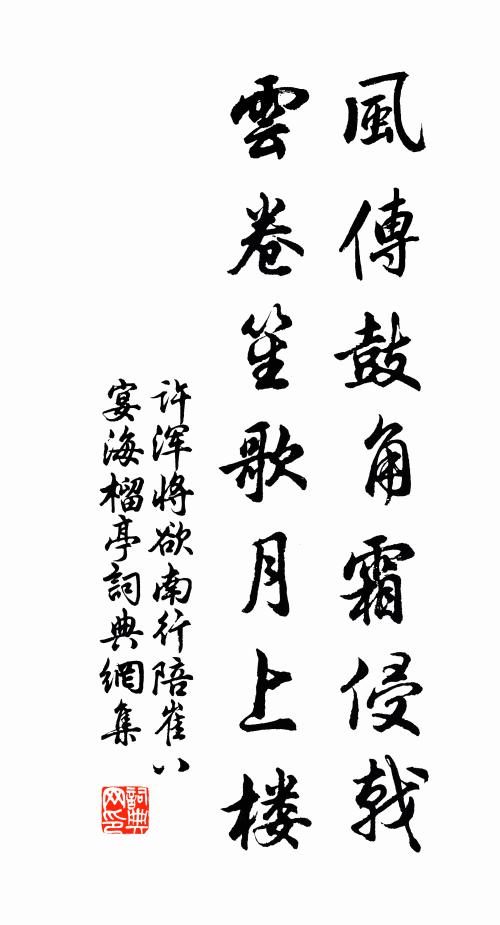 風傳鼓角霜侵戟
雲卷笙歌月上楼
许浑將欲南行陪崔八
宴海榴亭詞典網集
詞典
网印